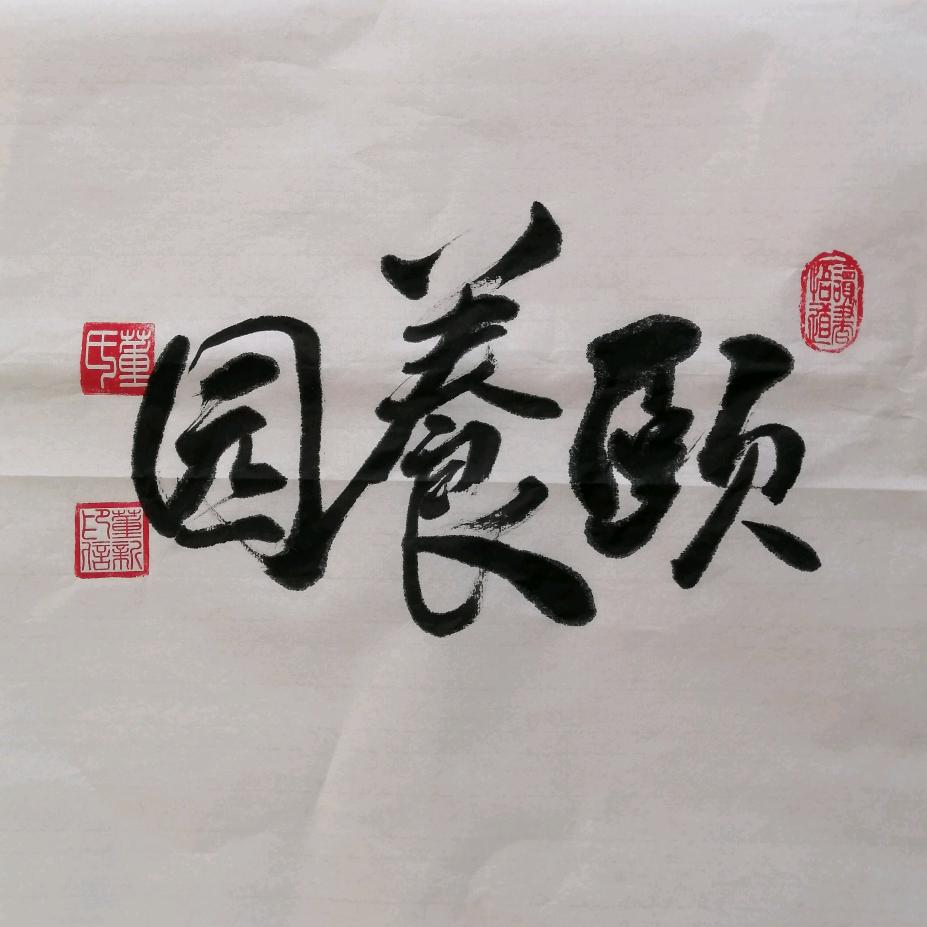 頤養园
讀書悟道
董氏
董新印信